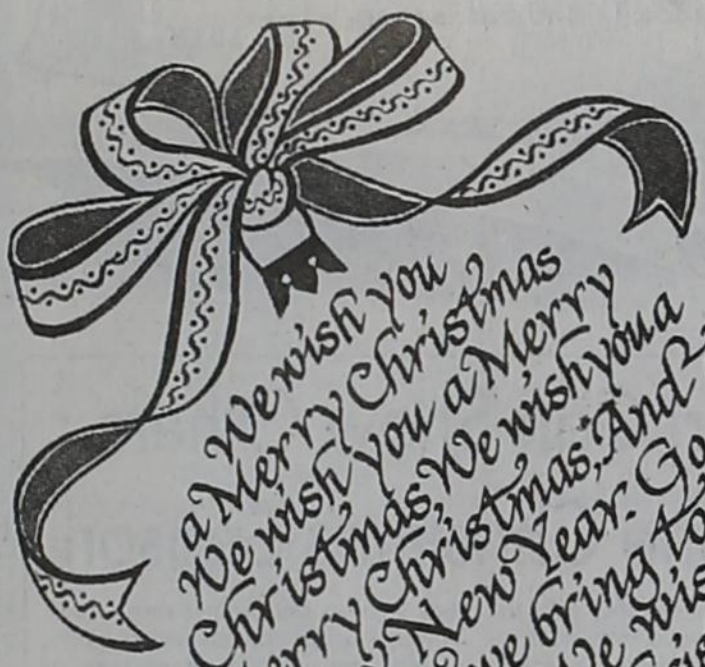 We wish you
a Merry Christmas
We wish you a Merry
Christmas, We wish you a
Merry Christmas, And
New Year. Go
we bring to
We wis